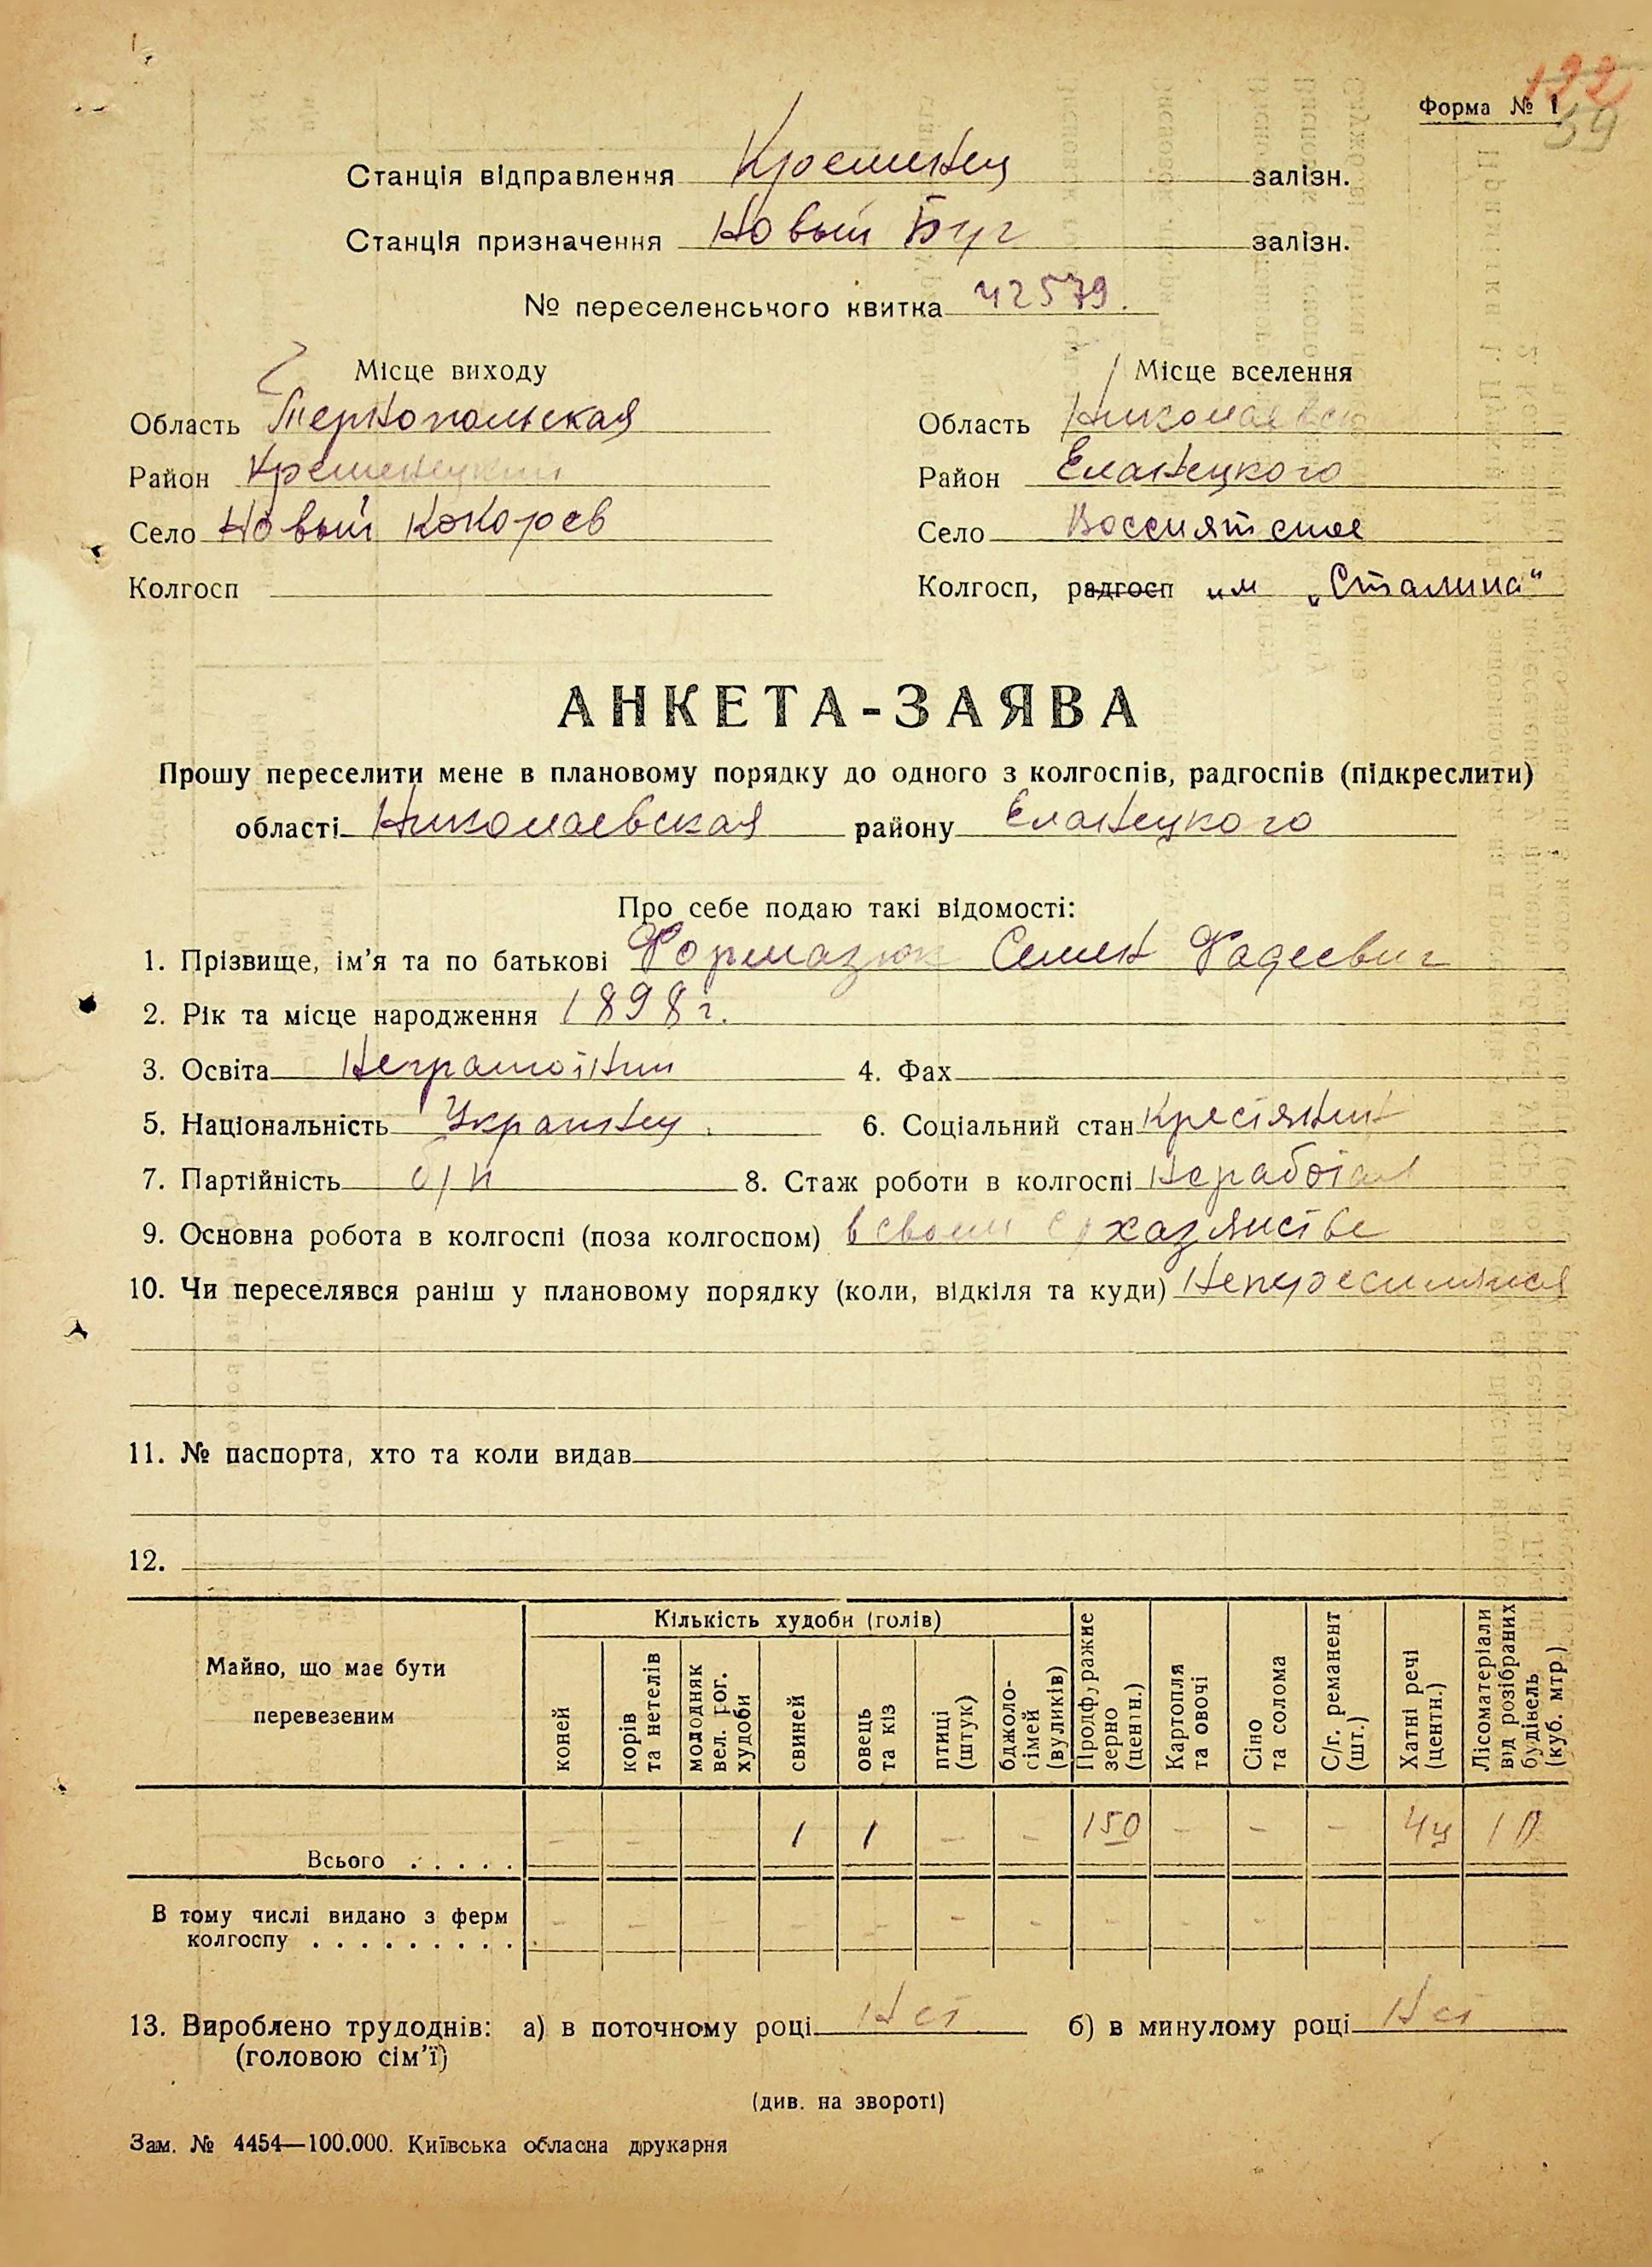 122
59
Форма № 1
Станція відправлення Кременец залізн.
Станція призначення Новый Буг залізн.
№ переселенського квитка 42579.
Місце виходу
Місце вселення
Область Тернопольская
Область Николаевск
Район Кременецкий
Район Еланецкого
Село Новый Кокорев
Село Воссиятское
Колгосп
Колгосп, радгосп им „Сталина“
АНКЕТА-ЗАЯВА
Прошу переселити мене в плановому порядку до одного з колгоспів, радгоспів (підкреслити)
області Николаевская району Еланецкого
Про себе подаю такі відомості:
1. Прізвище, ім’я та по батькові Формазюк Семен Фадеевич
2. Рік та місце народження 1898 г.
3. Освіта Неграмотний 4. Фах
5. Національність Украинец. 6. Соціальний стан Крестянин
7. Партійність б/п 8. Стаж роботи в колгоспі Неработал
9. Основна робота в колгоспі (поза колгоспом) в своем с/хазяистве
10. Чи переселявся раніш у плановому порядку (коли, відкіля та куди)
11. № паспорта, хто та коли видав
12.
Майно, що має бути перевезеним
Кількість худоби (голів)
коней
корів та нетелів
молодняк вел. рог. худоби
свиней
овець та кіз
птиці (штук)
бджоло-сімей (вуликів)
Продфуражне зерно (центн.)
Картопля та овочі
Сіно та солома
С/г. реманент (шт.)
Хатні речі (центн.)
Лісоматеріали від розібраних будівель (куб. мтр.)
Всього . . . . . – – – 1 1 – – 150 – – – 4ц 10
В тому числі видано з ферм
колгоспу . . . . . . . . . – – – – – – – – – –
13. Вироблено трудоднів: а) в поточному році Нет б) в минулому році Нет
(головою сім’ї)
(див. на звороті)
Зам. № 4454—100.000. Київська обласна друкарня